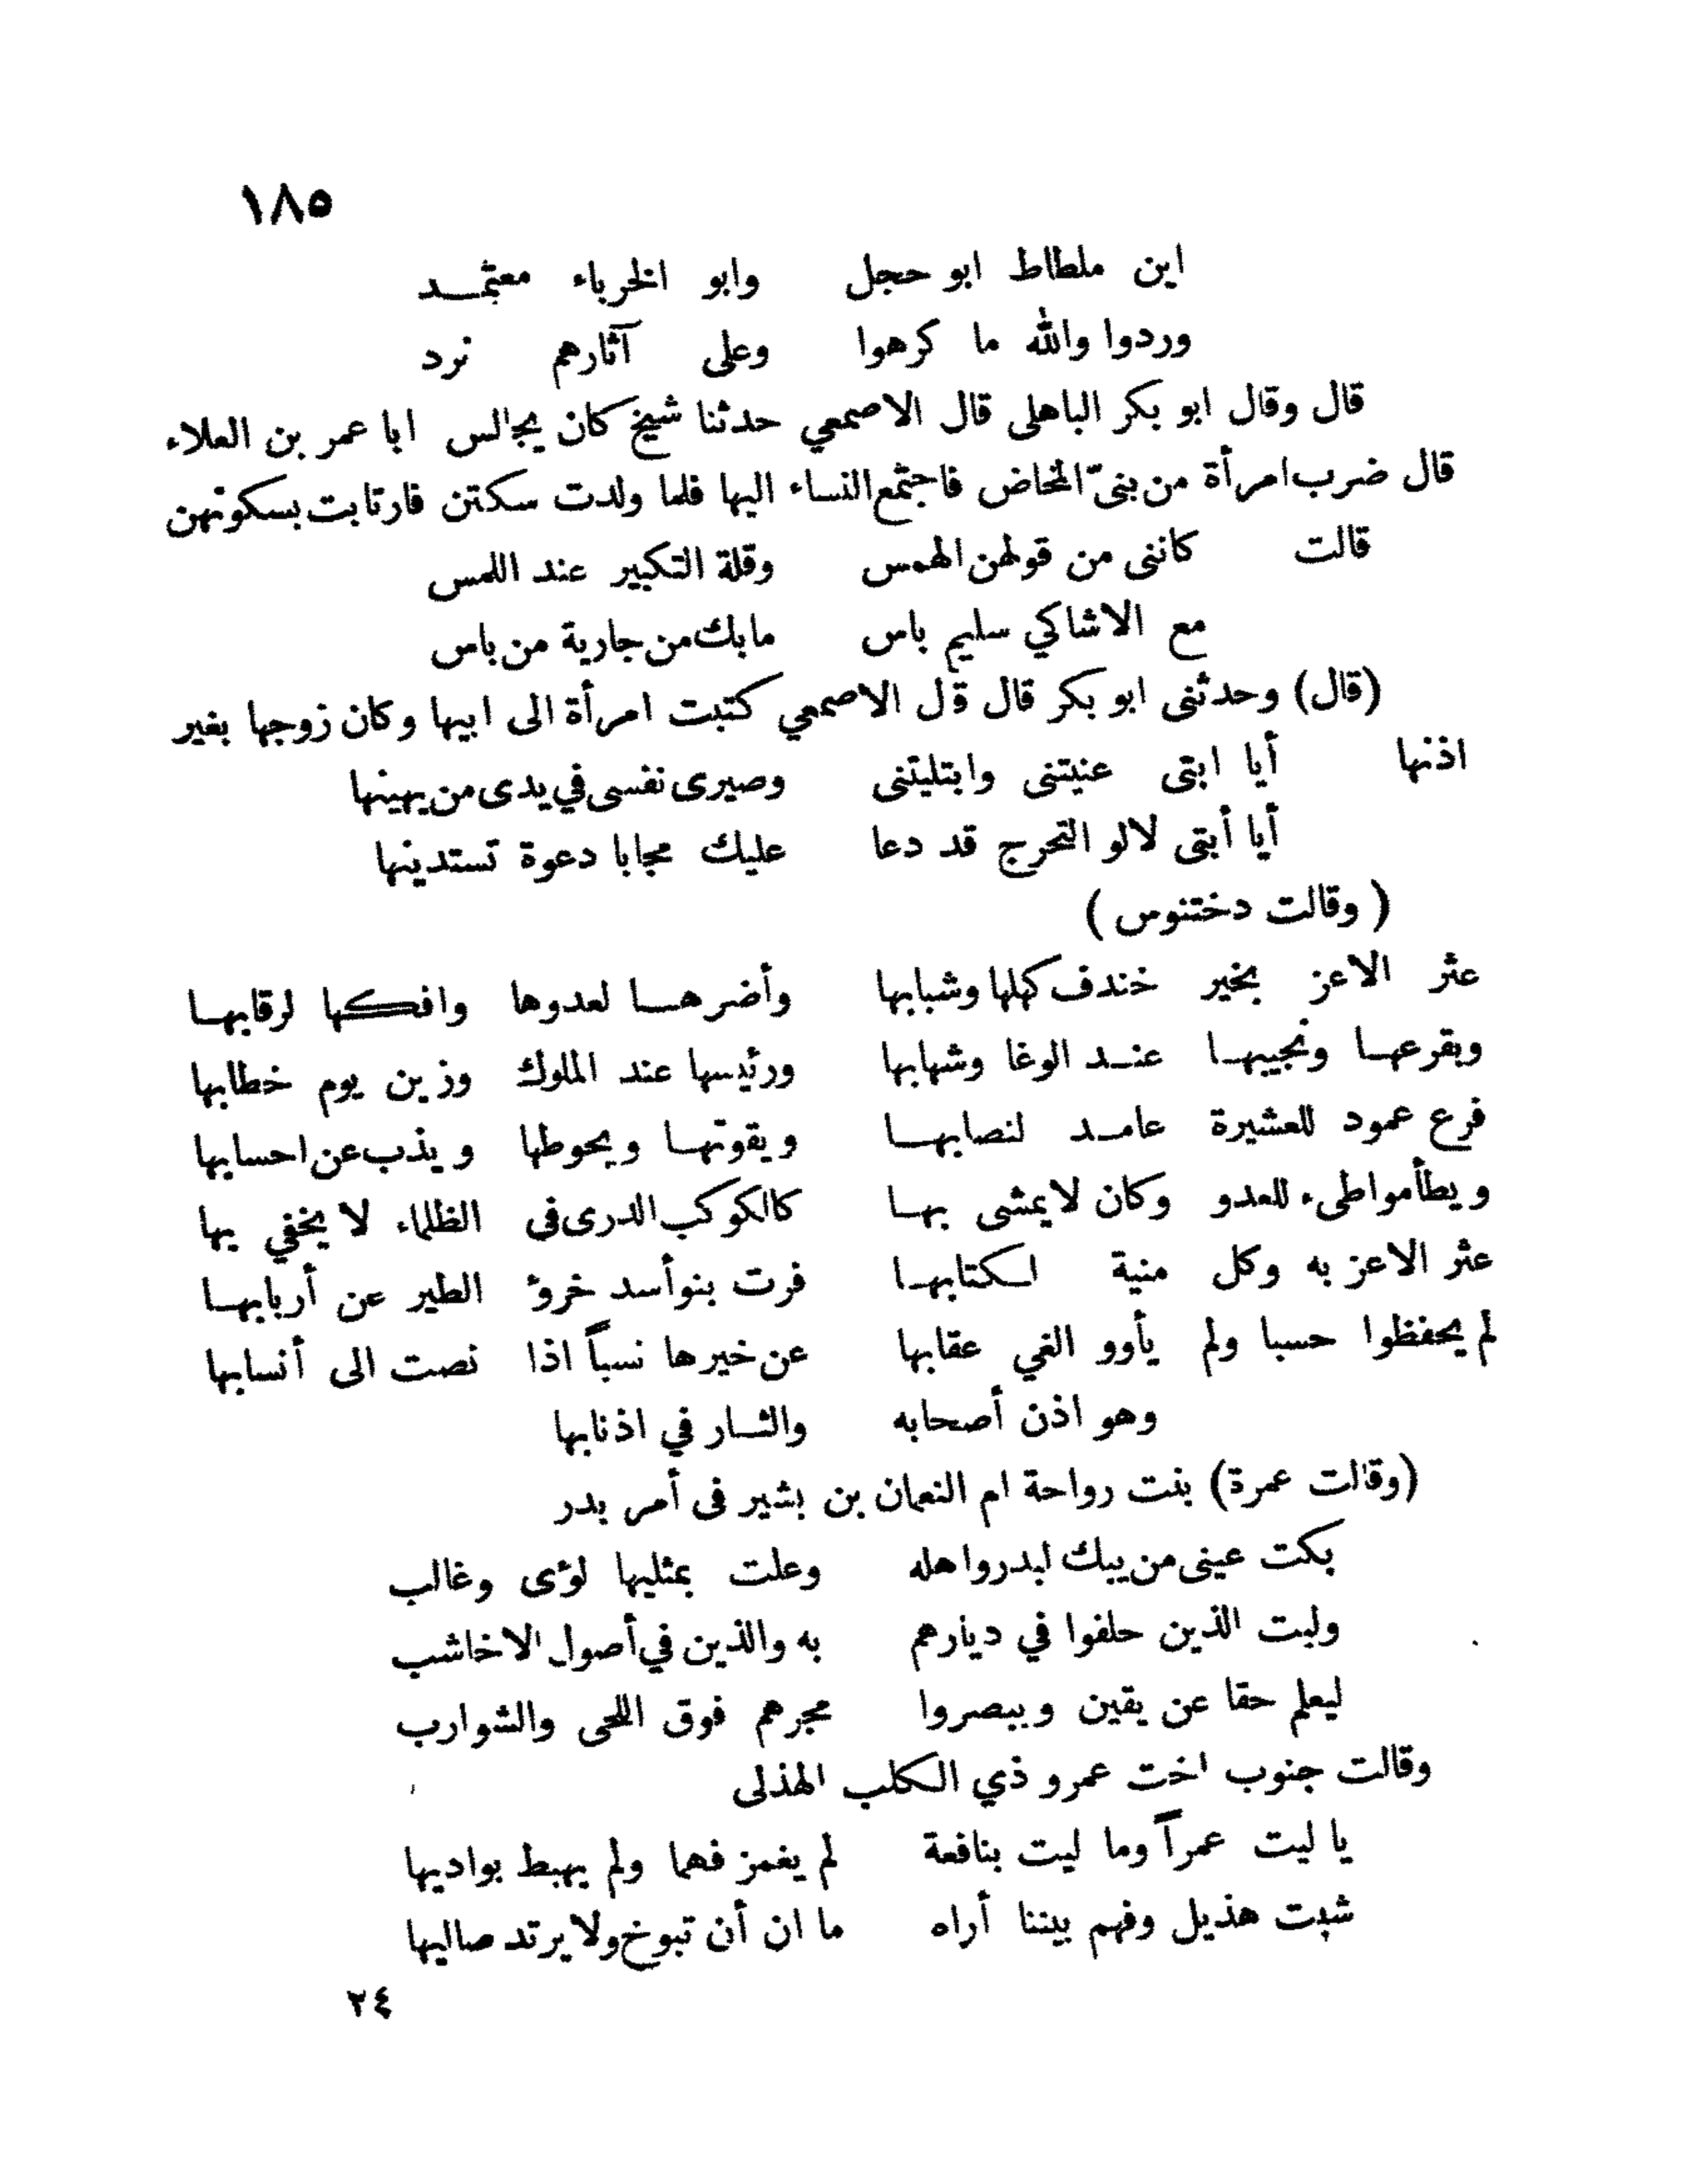 ١٨٥
اين ملطاط ابو حجل وابو الخرباء معتمد
وردوا والله ما كرهوا وعلى آثارهم نرد
قال وقال ابو بكر الباهلى قال الاصمعي حدثنا شيخ كان يجالس ابا عمر بن العلاء
قال ضرب امرأة من بنىّ المخاض فاجتمع النساء اليها فلما ولدت سكتن فارتابت بسكوتهن
قالت كاننى من قولهن الهمس وقلة التكبير عند اللمس
مع الاشاكي سليم باس مابك من جارية من باس
(قال) وحدثنى ابو بكر قال قل الاصمعي كتبت امرأة الى ابيها وكان زوجها بغير
اذنها أيا ابتى عنيتنى وابتليتنى وصيرى نفسى في يدى من يهينها
أيا أبتى لالو التحرج قد دعا عليك مجابا دعوة تستدينها
( وقالت دختنوس )
عثر الاعز بخير خندف كهلها وشبابها وأضرهــا لعدوها وافكها لرقابهـا
وبقرعهـا ونجيبهـا عنـد الوغا وشهابها ورئيسها عند الملوك وزين يوم خطابها
فرع عمود للعشيرة عامـد لنصابهــا ويقوتهـا ويحوطها ويذب عن احسابها
ويطأ مواطىء للعدو وكان لايمشى بهـا كالكوكب الدرى فى الظلماء لا يخفي بها
عثر الاعز به وكل منية لـكتابهـا فرت بنوأسد خروٴ الطير عن أربابهـا
لم يحفظوا حسبا ولم يأوو الغي عقابها عن خيرها نسباً اذا نصت الى أنسابها
وهو اذن أصحابه والشـار في اذنابها
(وقالت عمرة) بنت رواحة ام النعمان بن بشير فى أمر بدر
بكت عينى من يبك لبدر واهله وعلت بمثليها لؤى وغالب
وليت الذين حلفوا في ديارهم به والذين في أصول الاخاشب
ليعلم حقا عن يقين ويبصروا مجرهم فوق اللحى والشوارب
وقالت جنوب اخت عمرو ذي الكلب الهذلى
يا ليت عمراً وما ليت بنافعة لم يغمز فهما ولم يهبط بواديها
شبت هذيل وفهم بيننا أراه ما ان أن تبوخ ولا يرتد صاليها
٢٤